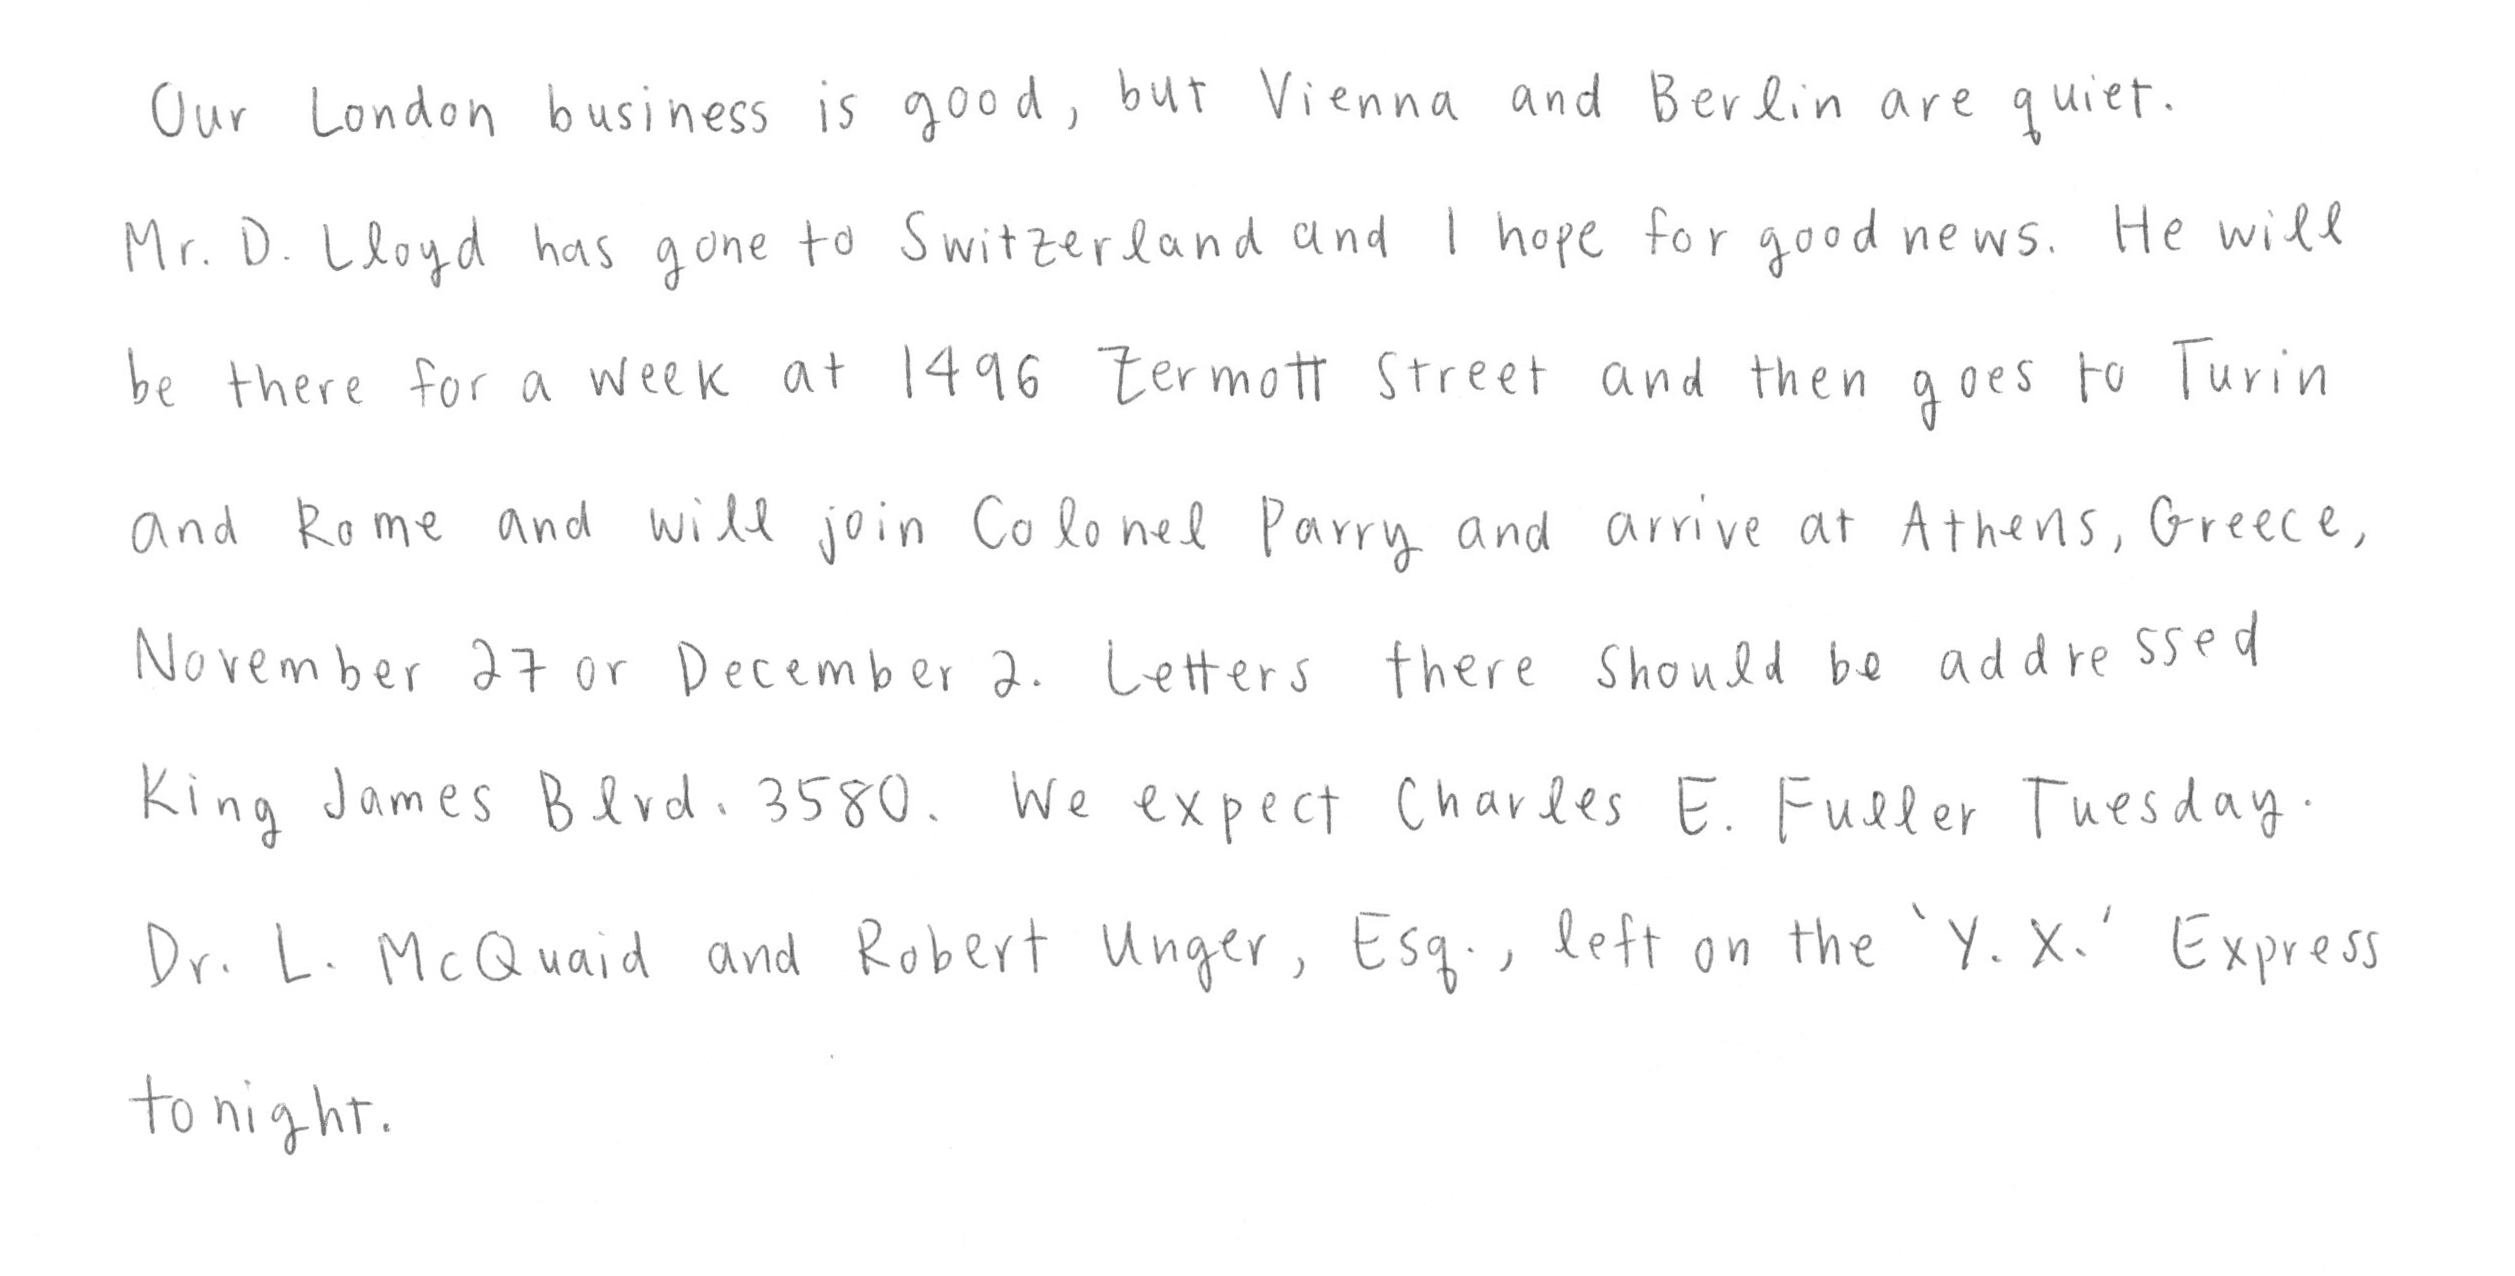 Our London business is good, but Vienna and Berlin are quiet.
Mr. D. Lloyd has gone to Switzerland and I hope for good news. He will
be there for a week at 1496 Zermott Street and then goes to Turin
and Rome and will join Colonel Parry and arrive at Athens, Greece,
November 27 or December 2. Letters there should be addressed
King James Blvd. 3580. We expect Charles E. Fuller Tuesday.
Dr. L. McQuaid and Robert Unger, Esq., left on the 'Y. X.' Express
tonight.